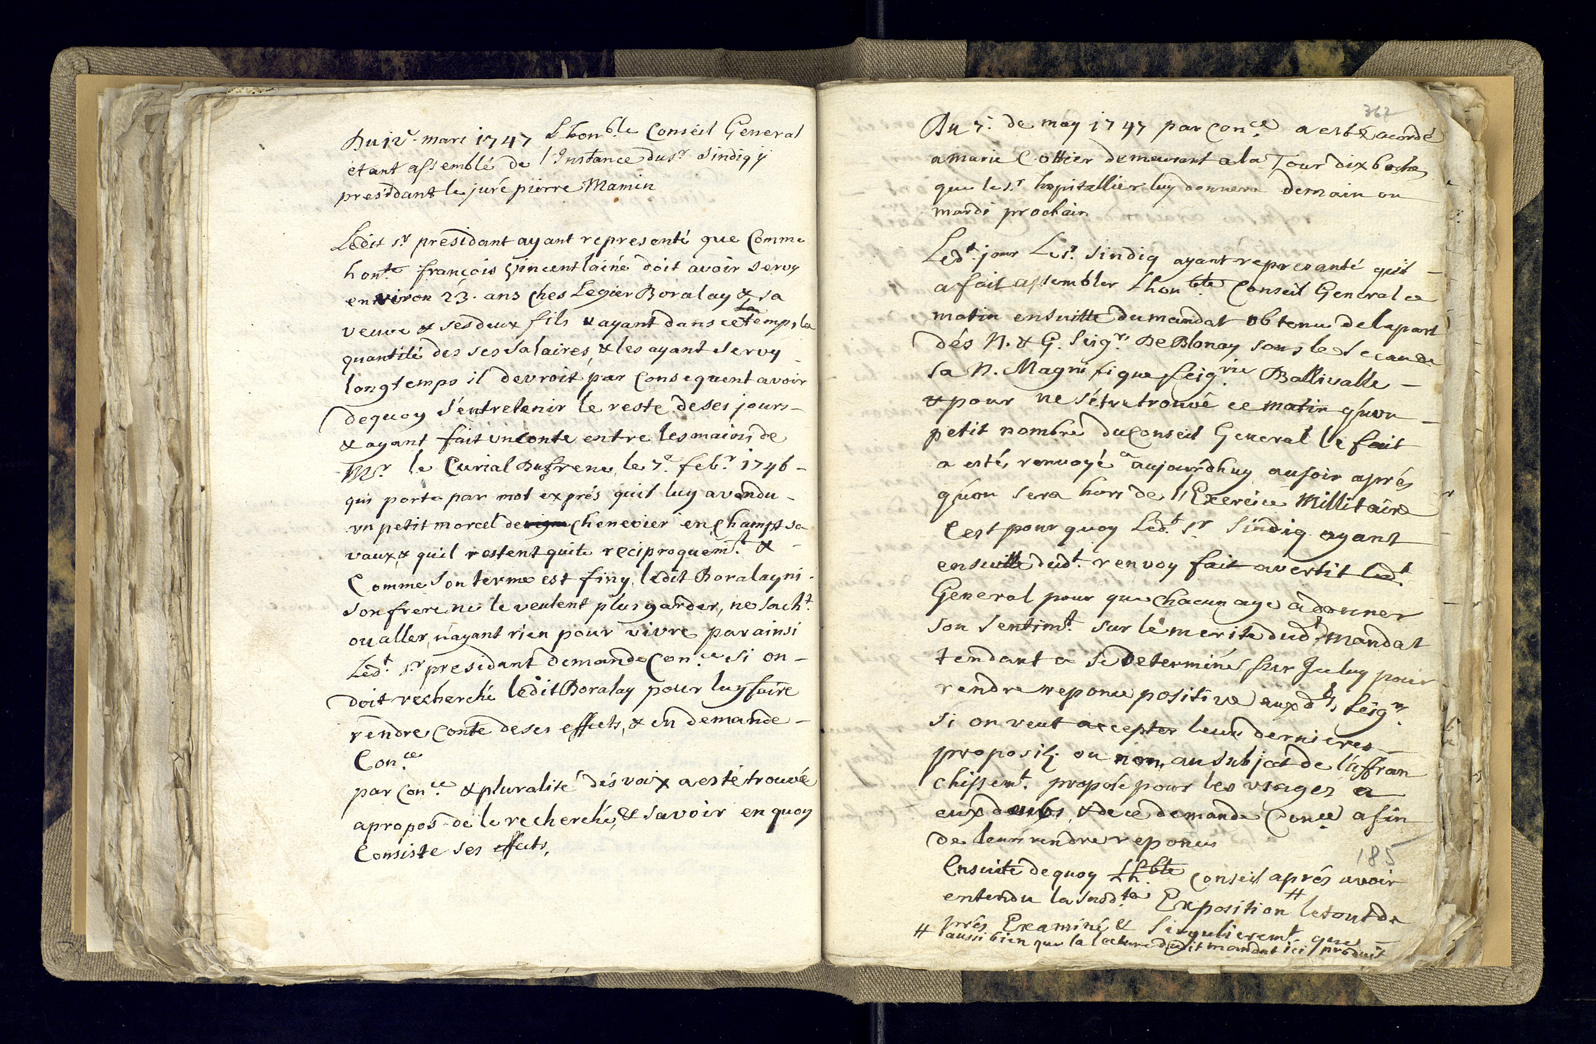 Du 12e. mars 1747 Lhonble Conseil General
étant assemblé de l'Instance du sr. Sindiq &
presidant le juré pierre Mamin
Ledit sr presidant ayant representé que Comme
honte. françois Vincent lainé doit avoir servy
environ 23. ans ches Legier Boralay & sa
veuve & ses deux fils & ayant dans ce temps la
quantité des ses Salaires, & les ayant servy
longtemps il devroit par Consequent avoir
dequoy s'entretenir le reste de ses jours
& ayant fait un conte entre les mains de
Mr. le Curial Dufresne, le 7e. febr. 1746
qui porte par mot exprés quil luy a vendu
un petit morcel de chenevier en Champt sa
vaux, & quil restent quite reciproquemt. &
Comme son terme est finy, ledit Boralay ni
son frere ne le veulent plus garder, ne sacht.
ou aller, n'ayant rien pour vivre par ainsi
Ledt. sr presidant demande Conce si on
doit recherché ledit Boralay pour luy faire
rendre Conte de ses effects, & en demande
Conce
par Conce & pluralité dés voix a esté trouvée
apropos de le recherché, & savoir en quoy
Consiste ses effects.
367
Du 7e. de may 1747 par Conce a esté acordé
a marie Cottier demeurant a la Tour dix baches
que le sr hospitallier luy donnera demain ou
mardi prochain
Ledt. jour Le sr. Sindiq ayant representé quil
a fait assembler Lhonble Conseil General ce
matin ensuitte du mandat obtenu de la part
dés N. & G. Seigrs De Blonay sous le Sceau de
sa N. Magnifique Seigrie Ballivalle
& pour ne s'étre trouvé ce matin qu'un
petit nombre du Conseil General le fait
a esté, renvoyé a aujourdhuy au soir aprés
qu'on sera hors de l'Exercice Millitaire
C'est pour quoy Ledt. sr Sindiq ayant
ensuitte dudt. renvoy fait avertit ledt
General pour que chacun aye à donner
son sentimt. sur le merite dudt. Mandat
tendant a se Determiner sur Iceluy pour
rendre reponce positive auxdts. Seigrs.
si on veut accepter leurs dernieres
proposit. ou non, au subject de l'affran
chissemt. proposé pour les usages a
eux deubs, & de ce demande Conce afin
de leur rendre reponce
185
Ensuite dequoy Lhble Conseil aprés avoir
entendu la susdte Exposition # le tout de
prés Examiné, & Singulieremt que
# aussi bien que la lecture dudit mandat ici produit